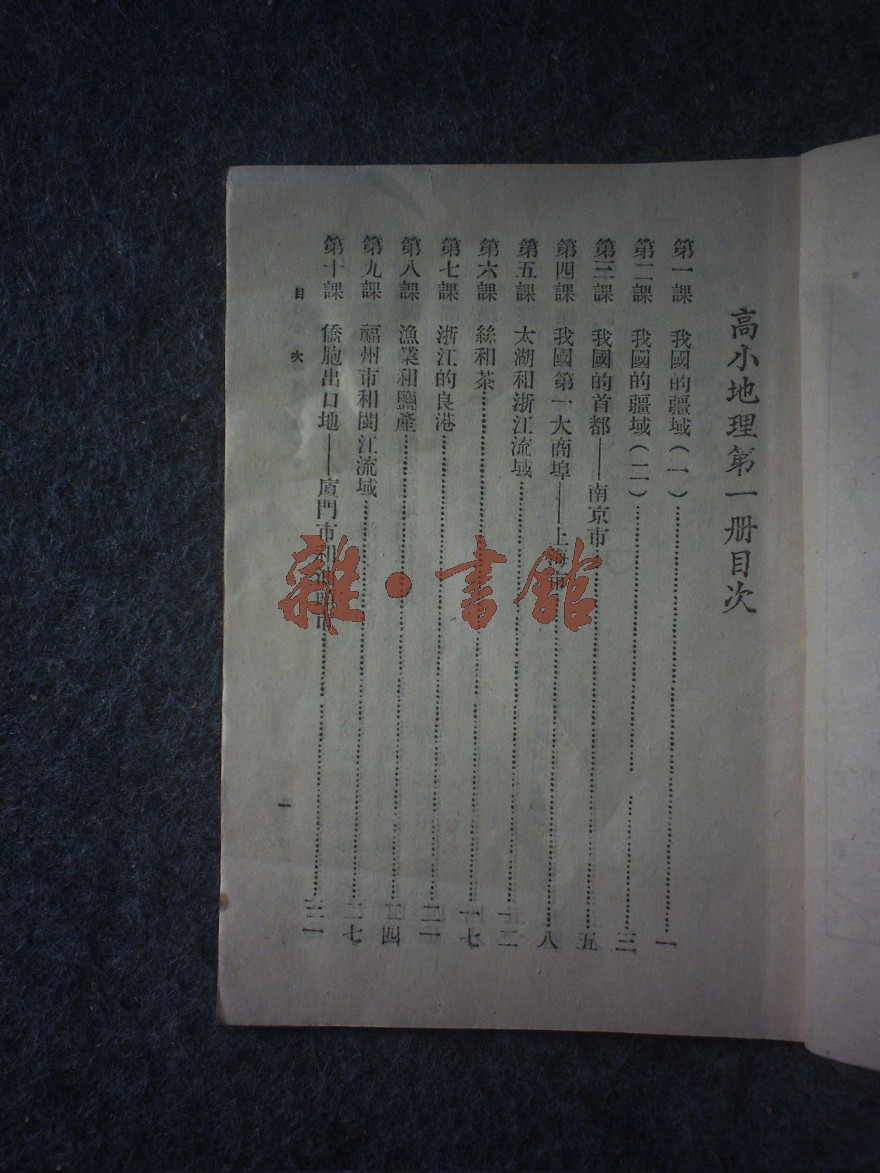 高小地理第一册目次
第一課 我國的疆域(一)……一
第二課 我國的疆域(二)……三
第三課 我國的首都——南京市……五
第四課 我國第一大商埠——上海市……八
第五課 太湖和浙江流域……一二
第六課 絲和茶……一七
第七課 浙江的良港……二一
第八課 漁業和鹽產……二四
第九課 福州市和閩江流域……二七
第十課 僑胞出口地——廈門市和……三一
目次
一
雜·書館